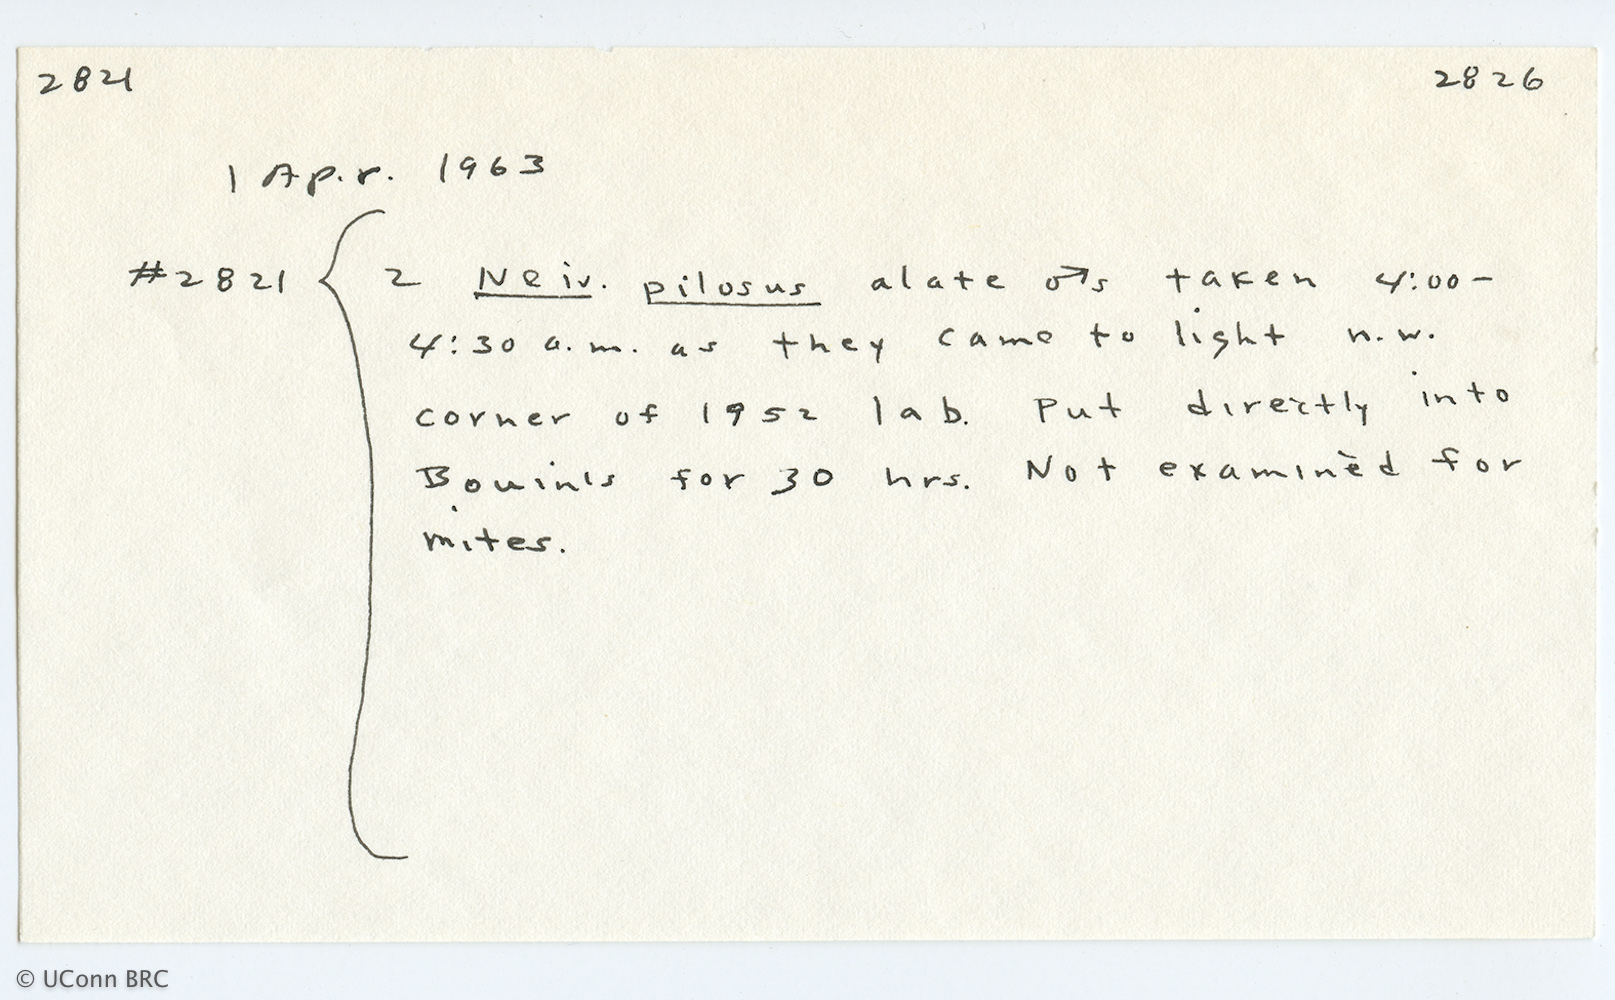 2821 2826
1 Apr. 1963
#2821 { 2 Neiv. pilosus alate ♂s taken 4:00-
4:30 a.m. as they came to light n.w.
corner of 1952 lab. Put directly into
Bouin's for 30 hrs. Not examined for
mites.
© UConn BRC